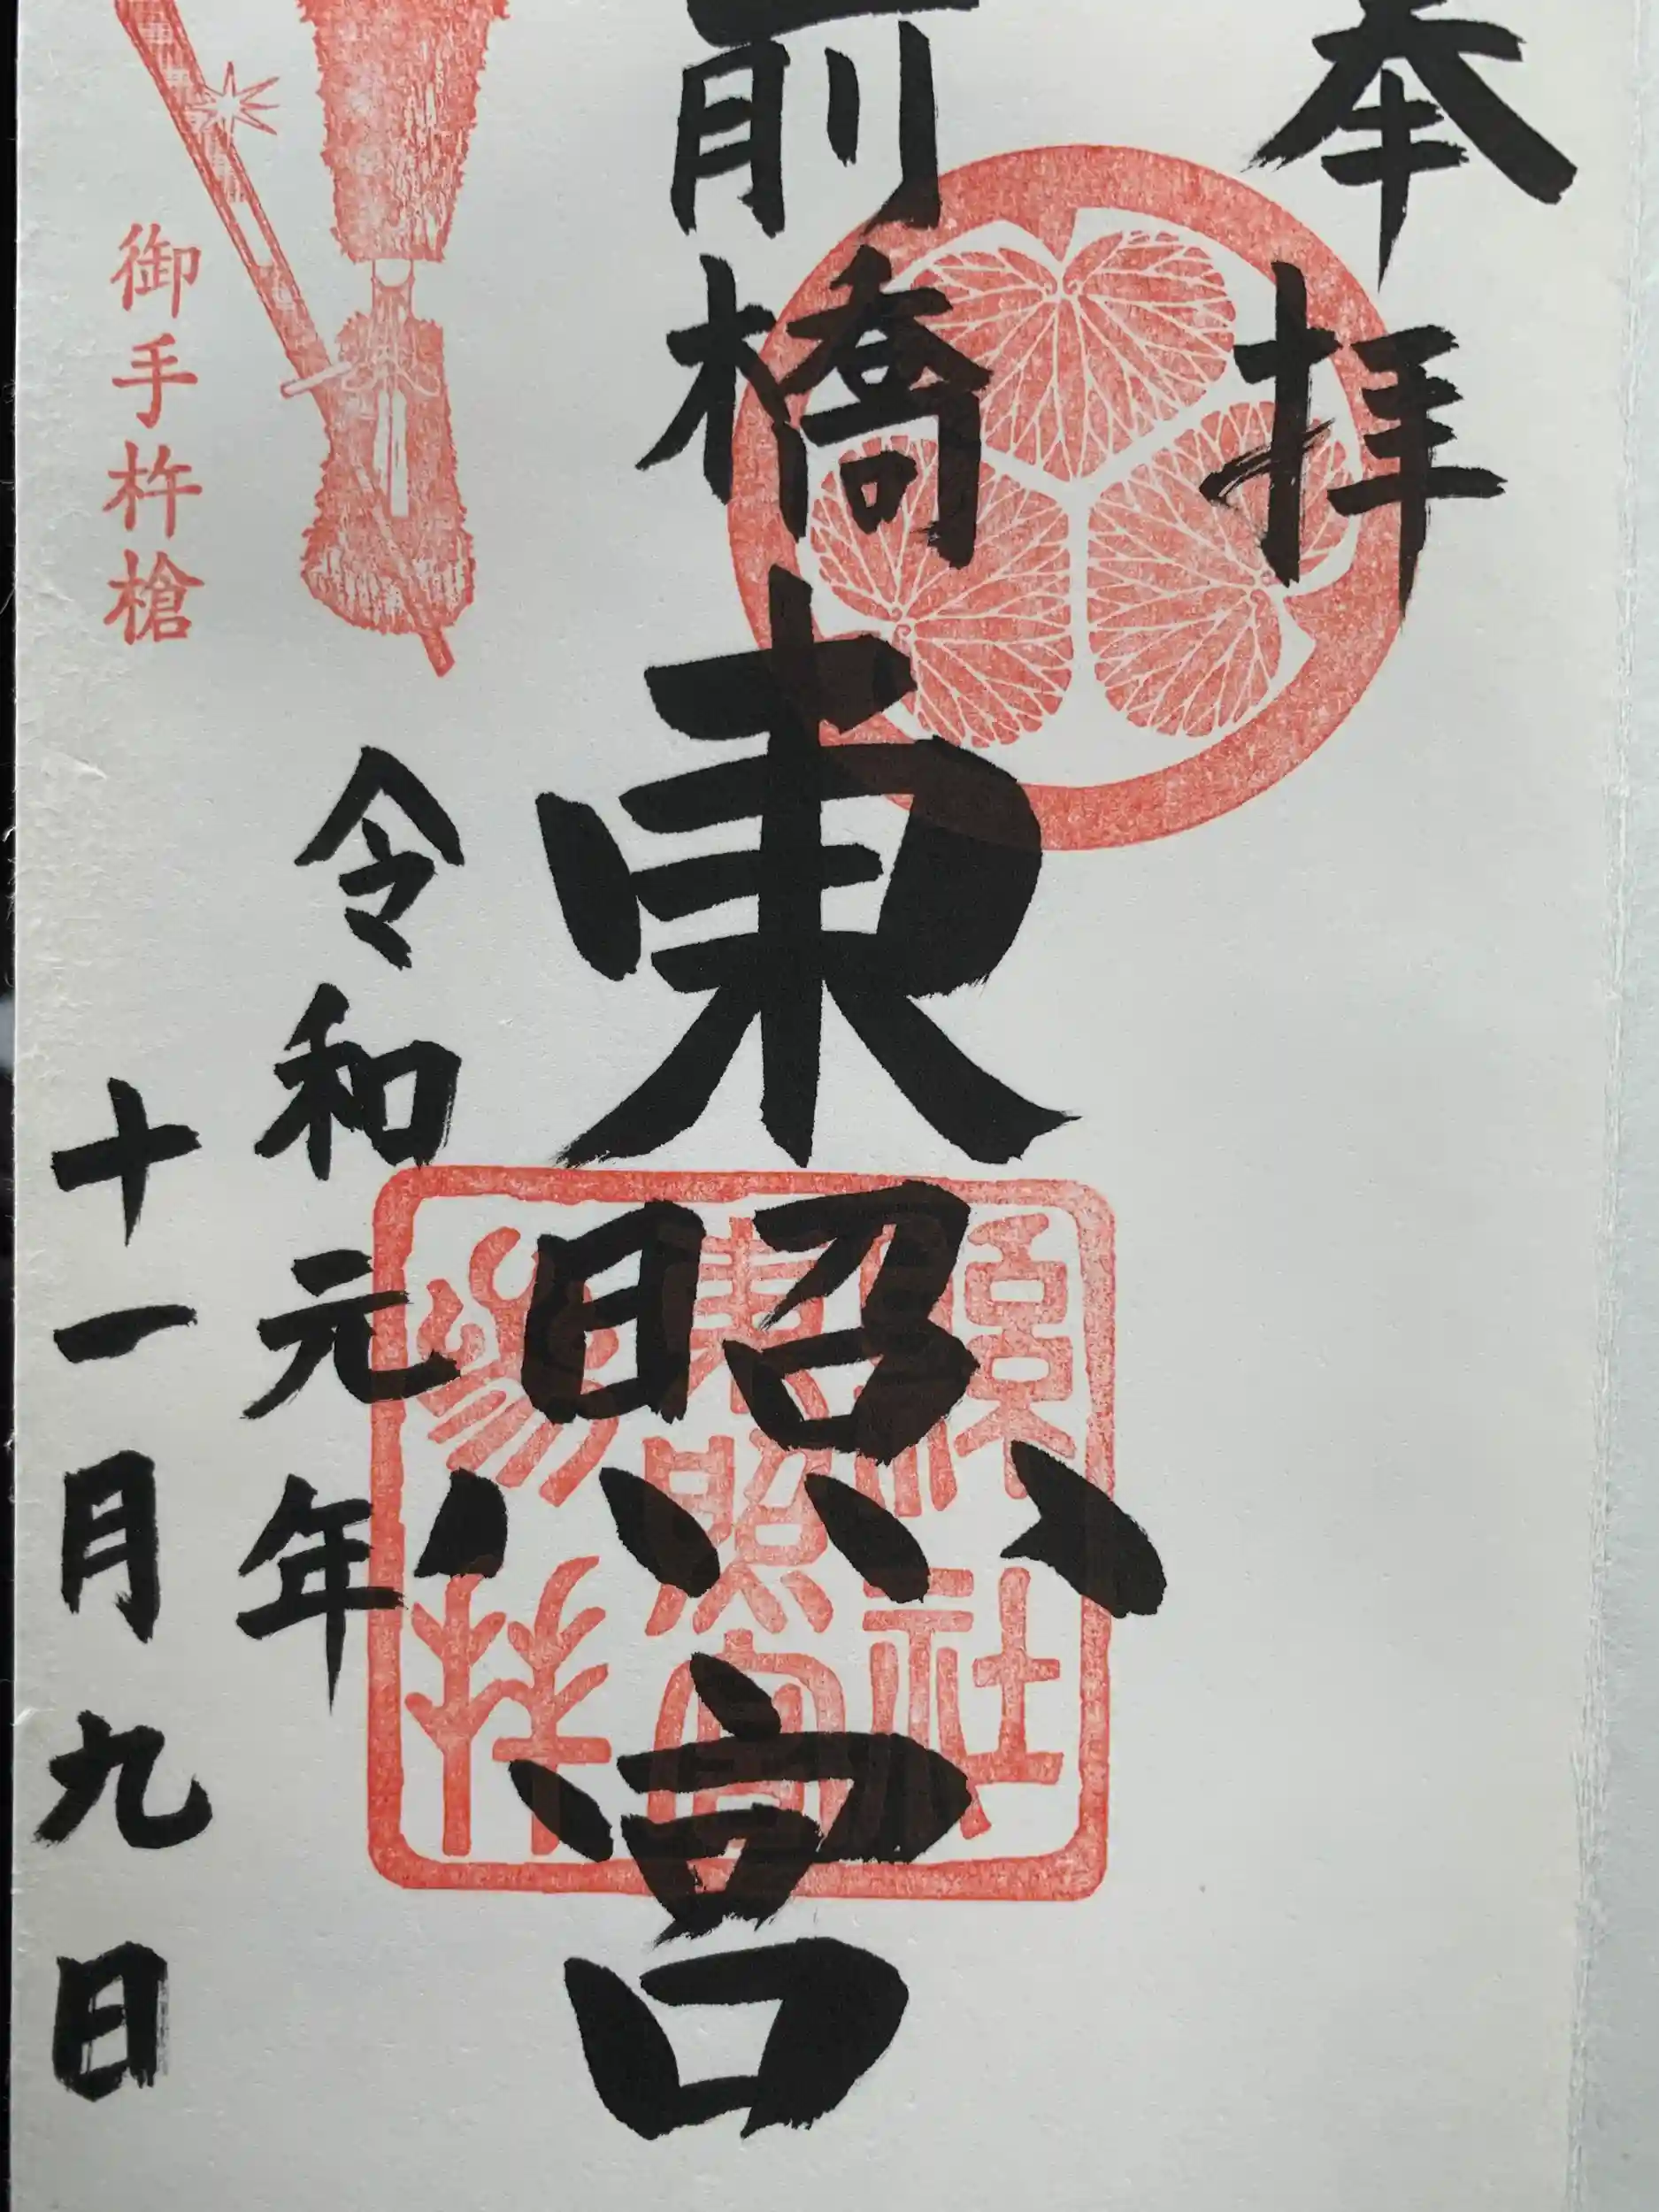 奉拝
前橋東照宮
令和元年
十一月九日
御手杵槍
東照宮